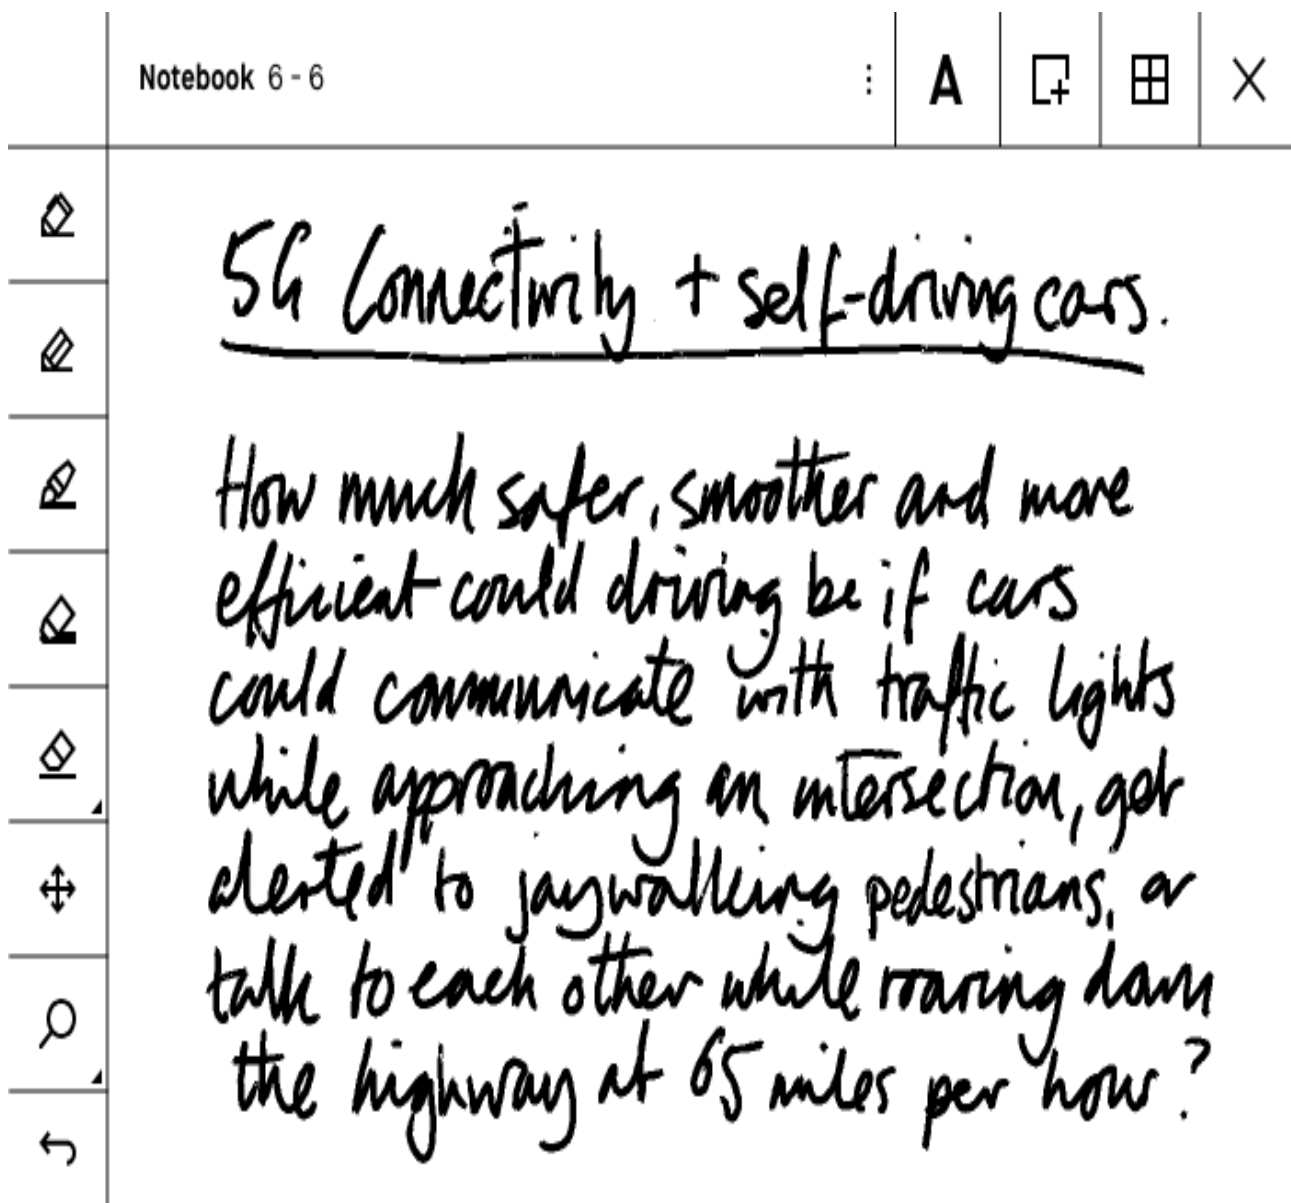 Notebook 6 - 6
A
5G Connectivity + self-driving cars.
How much safer, smoother and more
efficient could driving be if cars
could communicate with traffic lights
while approaching an intersection, get
alerted to jaywalking pedestrians, or
talk to each other while roaring down
the highway at 65 miles per hour?